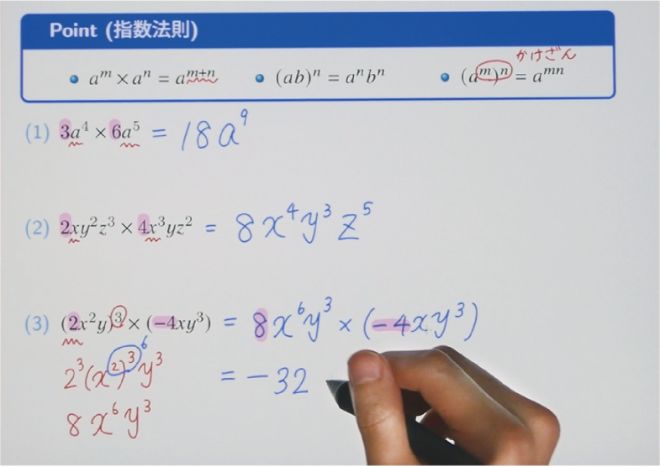 Point (指数法則)
かけざん
• aᵐ × aⁿ = aᵐ⁺ⁿ • (ab)ⁿ = aⁿbⁿ • (aᵐ)ⁿ = aᵐⁿ
(1) 3a⁴ × 6a⁵ = 18a⁹
(2) 2xy²z³ × 4x³yz² = 8x⁴y³z⁵
(3) (2x²y)³ × (−4xy³) = 8x⁶y³ × (−4xy³)
2³(x²)³y³ 6
= −32
8x⁶y³